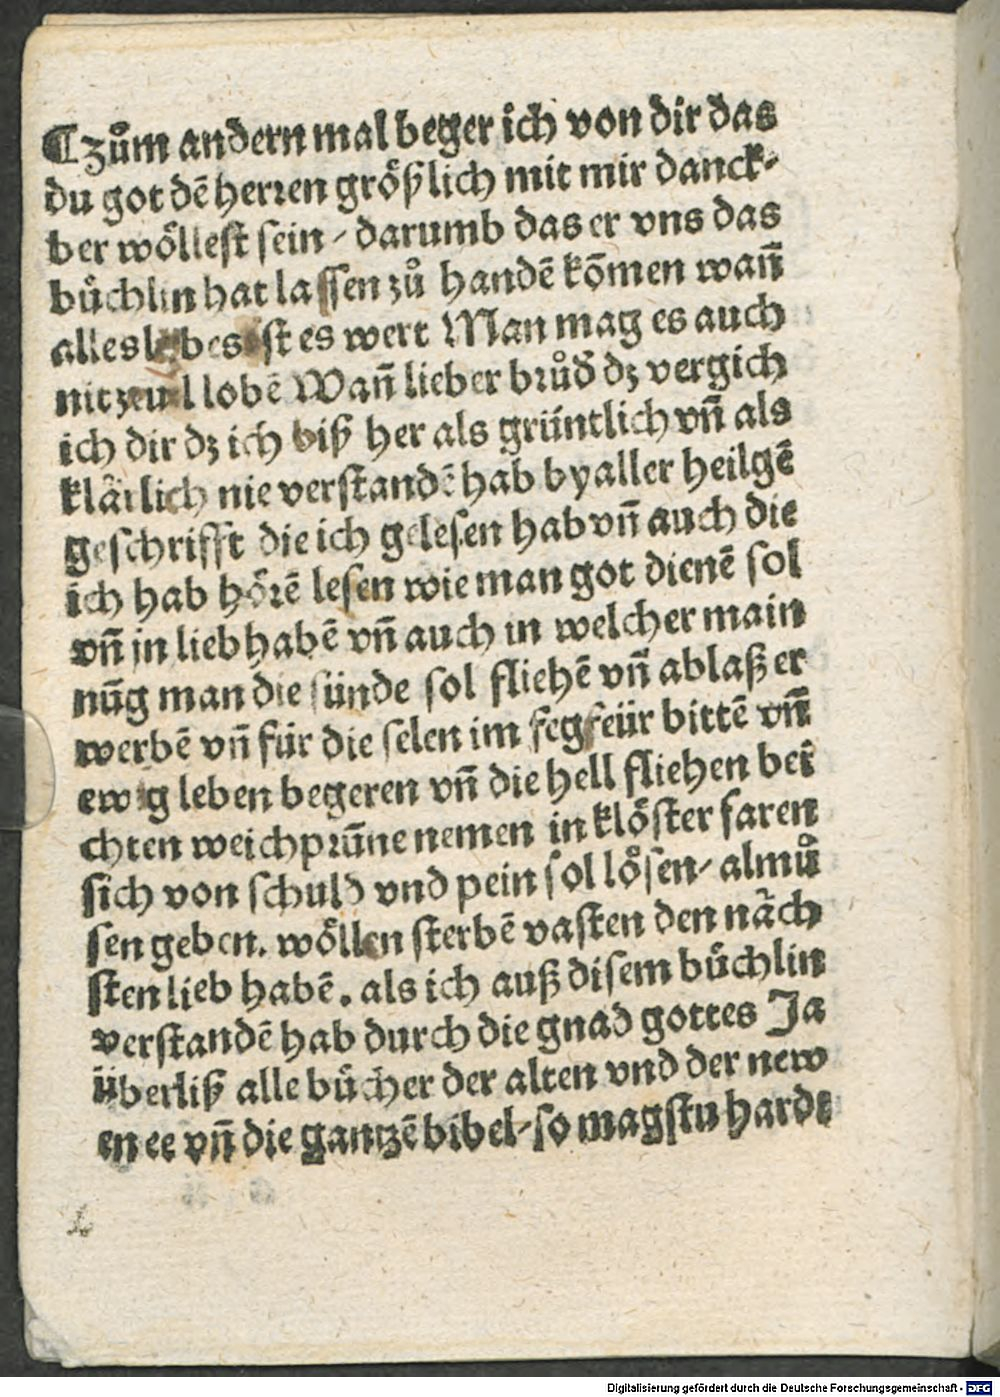 ¶zům andern mal beger ich von dir das
du got dē herꝛen größlich mit mir danck⸗
ber wöllest sein / darumb das er vns das
bůchlin hat lassen zů handē kōmen wañ
alles lobes ist es wert Man mag es auch
nit zeuil lobē Wañ lieber brůd̄ dz vergich
ich dir dz ich biß her als grüntlich vñ als
klärlich nie verstandē hab by aller heilgē
geschrifft die ich gelesen hab vñ auch die
ich hab hörē lesen wie man got dienē sol
vñ in lieb habē vñ auch in welcher main
nūg man die sünde sol fliehē vñ ablaß er
werbē vñ für die selen im fegfeür bittē vñ
ewig leben begeren vñ die hell fliehen bei
chten weichprūne nemen in klöster faren
sich von schuld vnd pein sol lösen / almů
sen geben. wöllen sterbē vasten den näch
sten lieb habē. als ich auß disem bůchlin
verstandē hab durch die gnad gottes Ja
überliß alle bůcher der alten vnd der new
en ee vñ die gantzē bibel / so magstu harde
Digitalisierung gefördert durch die Deutsche Forschungsgemeinschaft - DFG